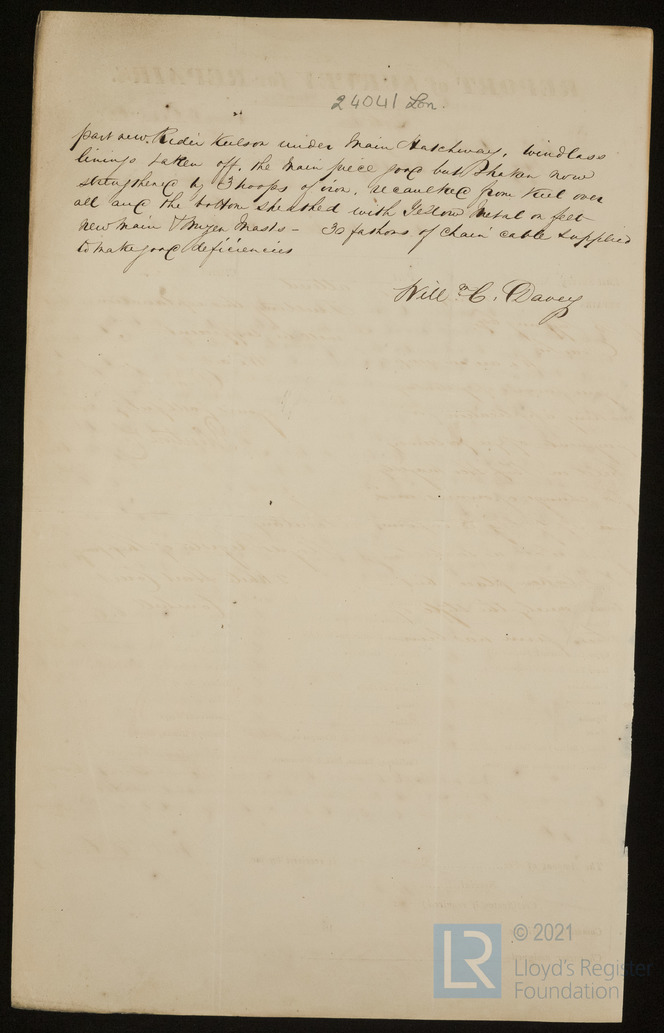 24041 Lon.
part new Rider Keelson under Main Hatchway, windlass
linings taken off, the main piece good but Shaken now
strengthened by 3 hoops of iron, recaulked from keel over
all and the bottom sheathed with Yellow Metal on felt
new Main & Mizen Masts – 30 fathoms of chain cable supplied
to make good deficiencies
Will m C. Davey
© 2021
LR
Lloyd's Register
Foundation